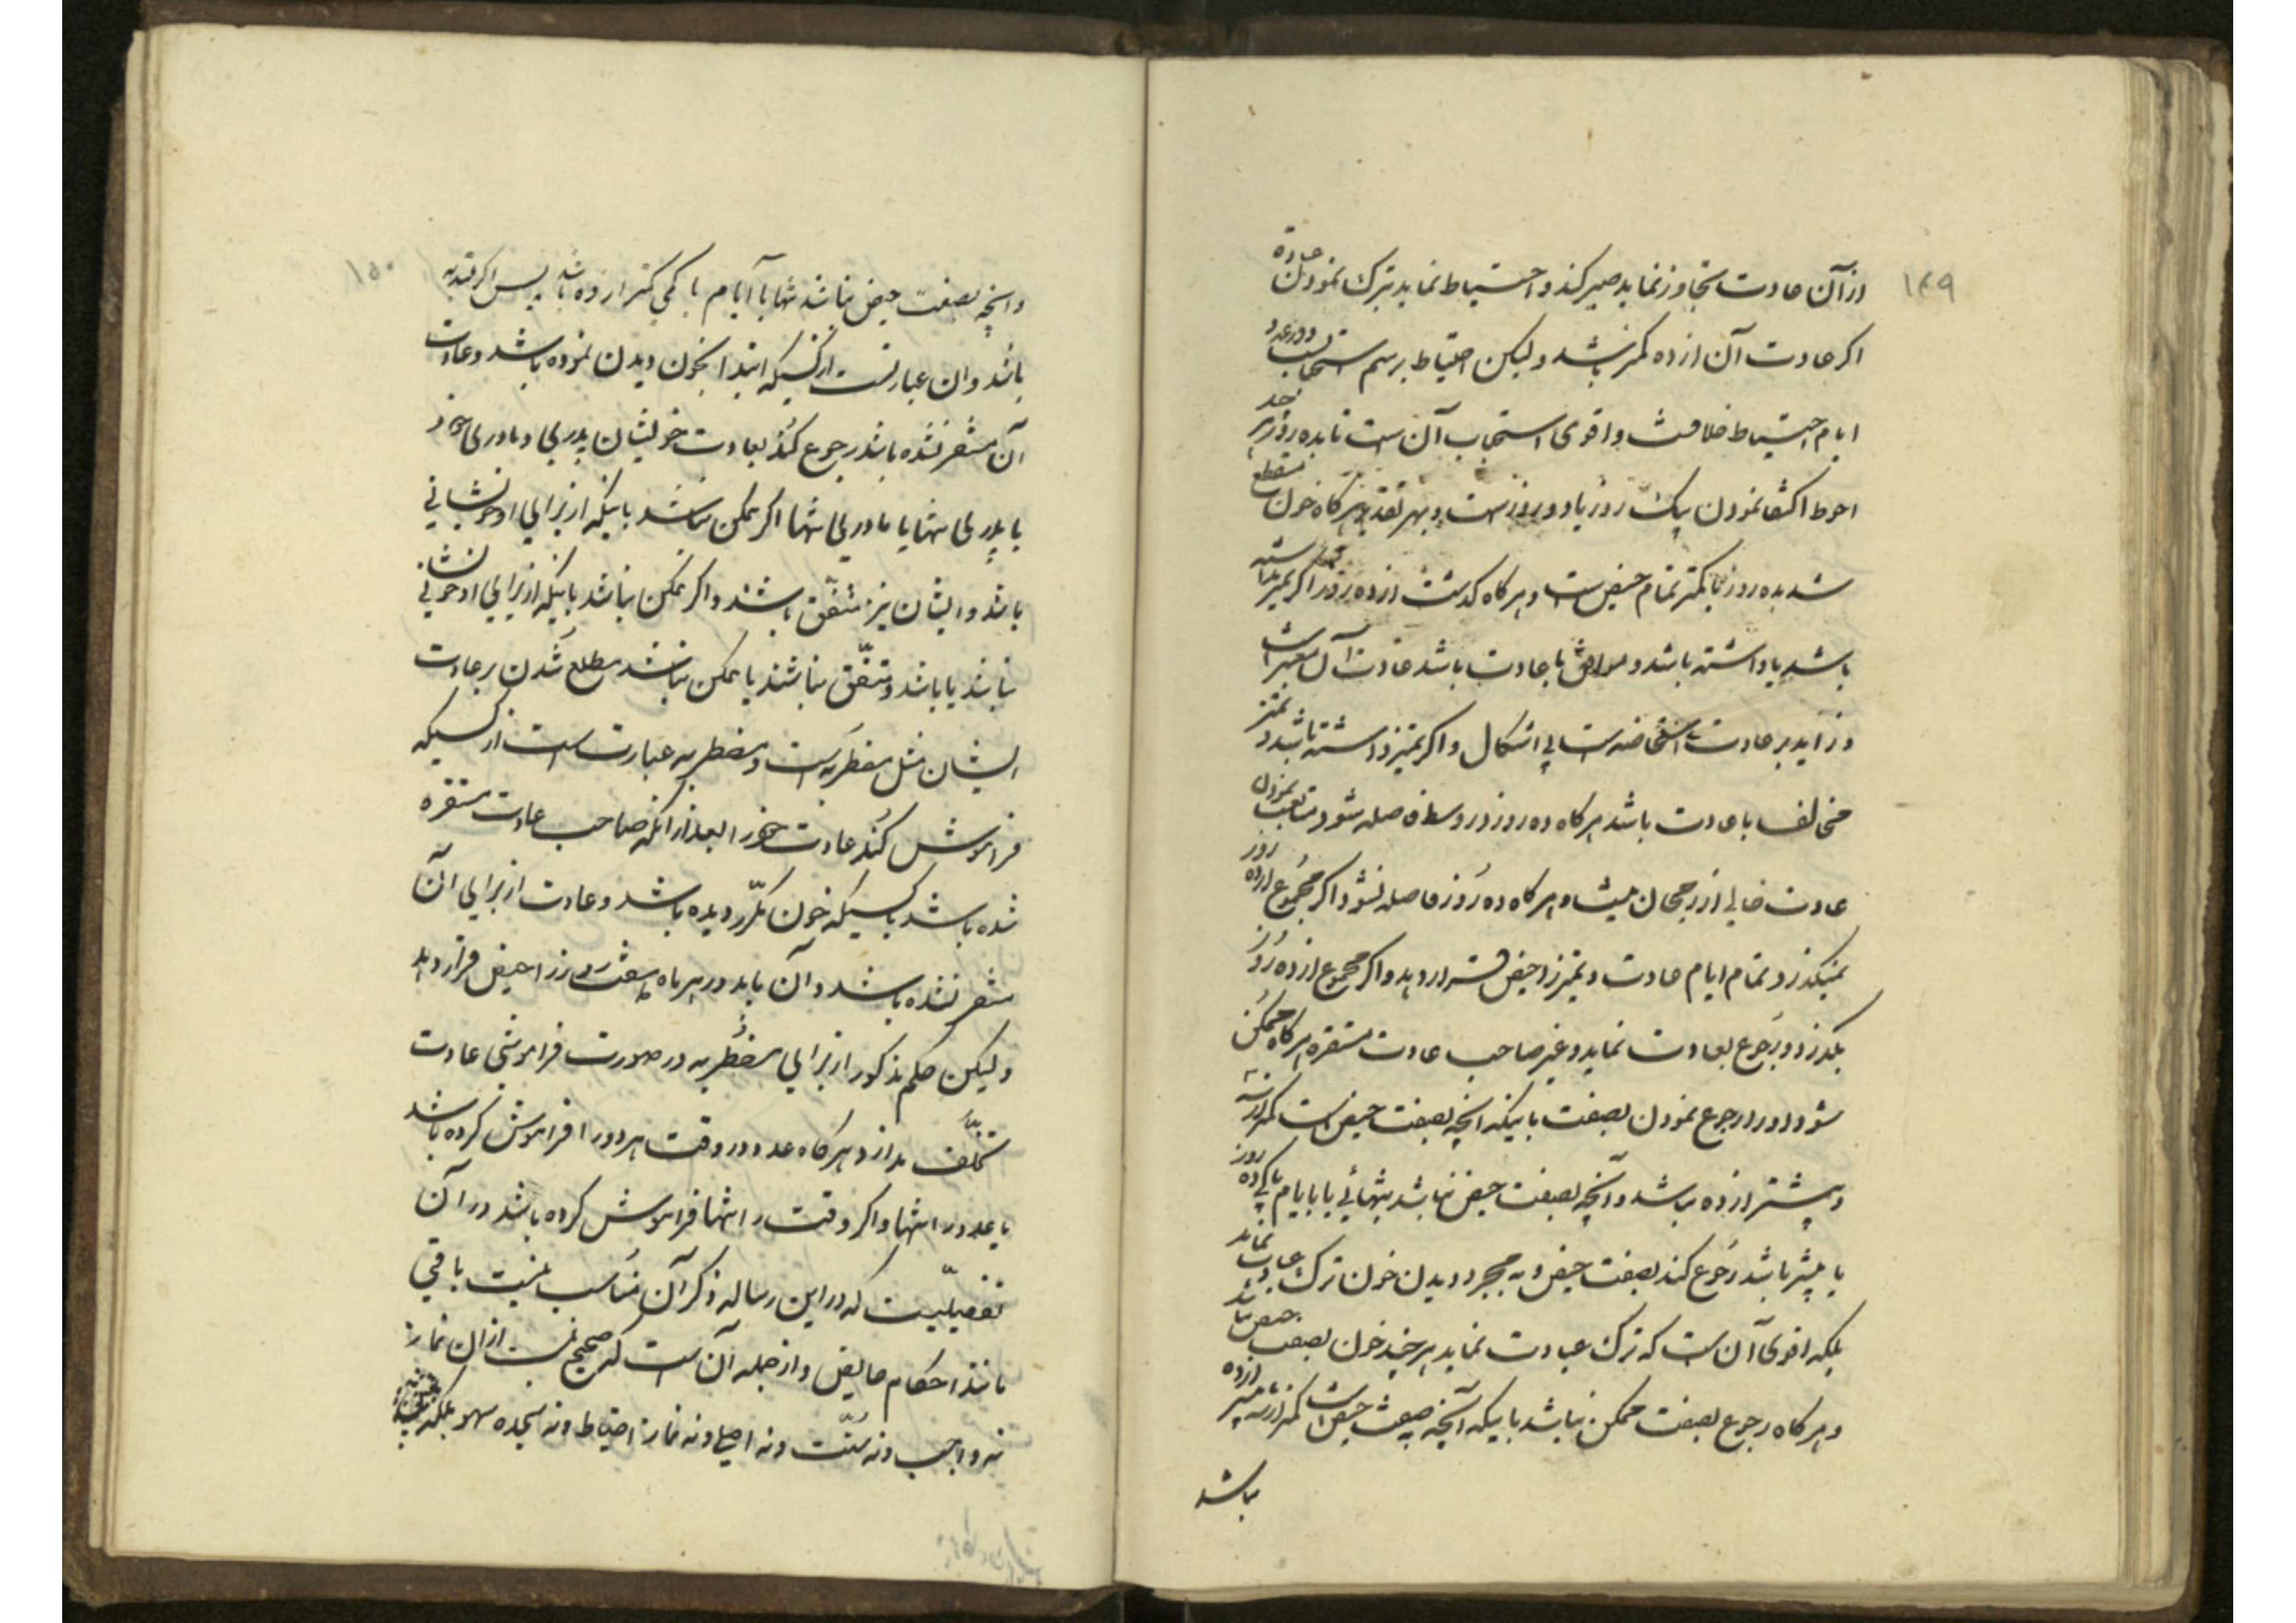 ۱۴۹
از آن عادت تجاوز نماید صبر کند و احتیاط نماید بترک نمودن عبادة
اگر عادت آن از ده کمتر باشد و لیکن احتیاط برسم استحبابست و در عدد
ایام احتیاط خلافست و اقوی استحباب آن است تا بده روز هر چند
احوط اکتفا نمودن بیک روز یا دو روز است و بهر تقدیر هر گاه خون منقطع
شد بده روز یا کمتر تمام حیض است و هر گاه گذشت از ده روز اگر تمیز نداشته
باشد یا داشته باشد و موافق با عادت باشد عادت آن معتبر است
و زاید بر عادت استحاضه است بی اشکال و اگر تمیز داشته باشد و تمیز
مخالف با عادت باشد هر گاه ده روز در وسط فاصله شود متابعت نمودن
عادت خالی از رجحان نیست و هر گاه ده روز فاصله نشود اگر مجموع از ده روز
نمیگذرد تمام ایام عادت و تمیز را حیض قرار دهد و اگر مجموع از ده روز
بگذرد رجوع بعادت نماید و غیر صاحب عادت مستقره هر گاه ممکن
شود او را رجوع نمودن بصفت باینکه آنچه بصفت حیض است کمتر از سه
و بیشتر از ده نباشد و آنچه بصفت حیض نباشد بتنهائی یا با ایام پاکی ده روز
یا بیشتر باشد رجوع کند بصفت حیض و به مجرد دیدن خون ترک عبادت نماید
بلکه اقوی آن است که ترک عبادت نماید هر چند خون بصفت حیض نباشد
و هر گاه رجوع بصفت ممکن نباشد باینکه آنچه بصفت حیض است کمتر از سه یا بیشتر از ده
باشد
۱۵۰
و آنچه بصفت حیض نباشد تنها یا با ایام پاکی کمتر از ده باشد پس اگر مبتدیه
باشد و آن عبارتست از کسیکه ابتدا بخون دیدن نموده باشد و عادت
آن مستقر نشده باشد رجوع کند بعادت خویشان پدری و مادری خود
یا پدری تنها یا مادری تنها اگر ممکن باشد باینکه از برای او خویشانی
باشد و ایشان نیز متفق باشند و اگر ممکن نباشد باینکه از برای او خویشانی
نباشد یا باشد و متفق نباشند یا ممکن نباشد مطلع شدن بر عادت
ایشان مثل مضطربه است و مضطربه عبارت است از کسیکه
فراموش کند عادت خود را بعد از آنکه صاحب عادت مستقره
شده باشد یا کسیکه خون مکرر دیده باشد و عادت از برای آن
مستقر نشده باشد و آن باید در هر ماه هفت روز را حیض قرار دهد
و لیکن حکم مذکور از برای مضطربه در صورت فراموشی عادت
تخلف ندارد هر گاه عدد و وقت هر دو را فراموش کرده باشد
یا عدد را تنها و اگر وقت را تنها فراموش کرده باشد در آن
تفصیلیست که در این رساله ذکر آن مناسب نیست باقی
ماند احکام حایض و از جمله آن است که صحیح نیست از آن نماز
نه واجب و نه سنت و نه اصلی و نه نماز احتیاط و نه سجده سهو بلکه